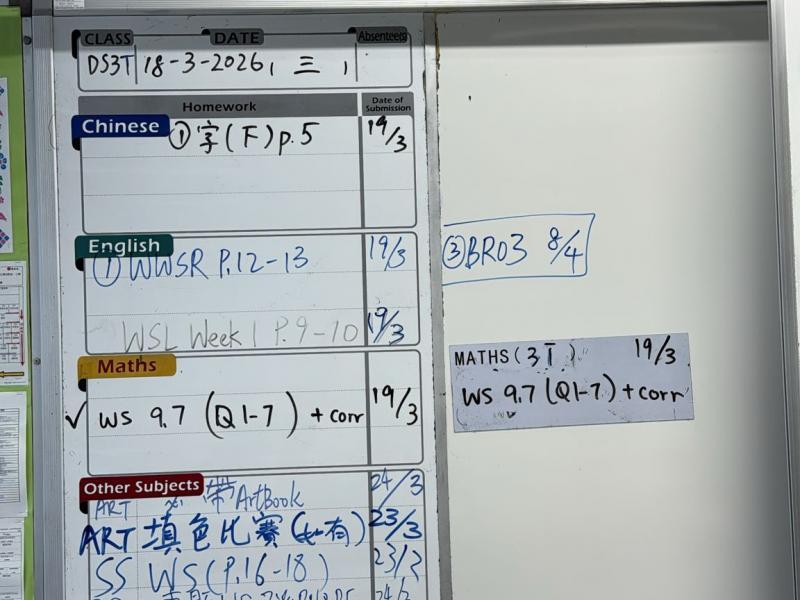 CLASS DATE Absentees
DS3T 18-3-2026, 三,
Homework Date of Submission
Chinese ① 字(下)p.5 19/3
English
① WWSR P.12-13 19/3
WSL Week 1 P.9-10 19/3
Maths
✓ WS 9.7 (Q1-7) + corr 19/3
Other Subjects
ART 帶ArtBook 24/3
ART 填色比賽(如有) 23/3
SS WS(P.16-18) 23/3
③BR03 8/4
MATHS(3T) 19/3
WS 9.7 (Q1-7) + corr